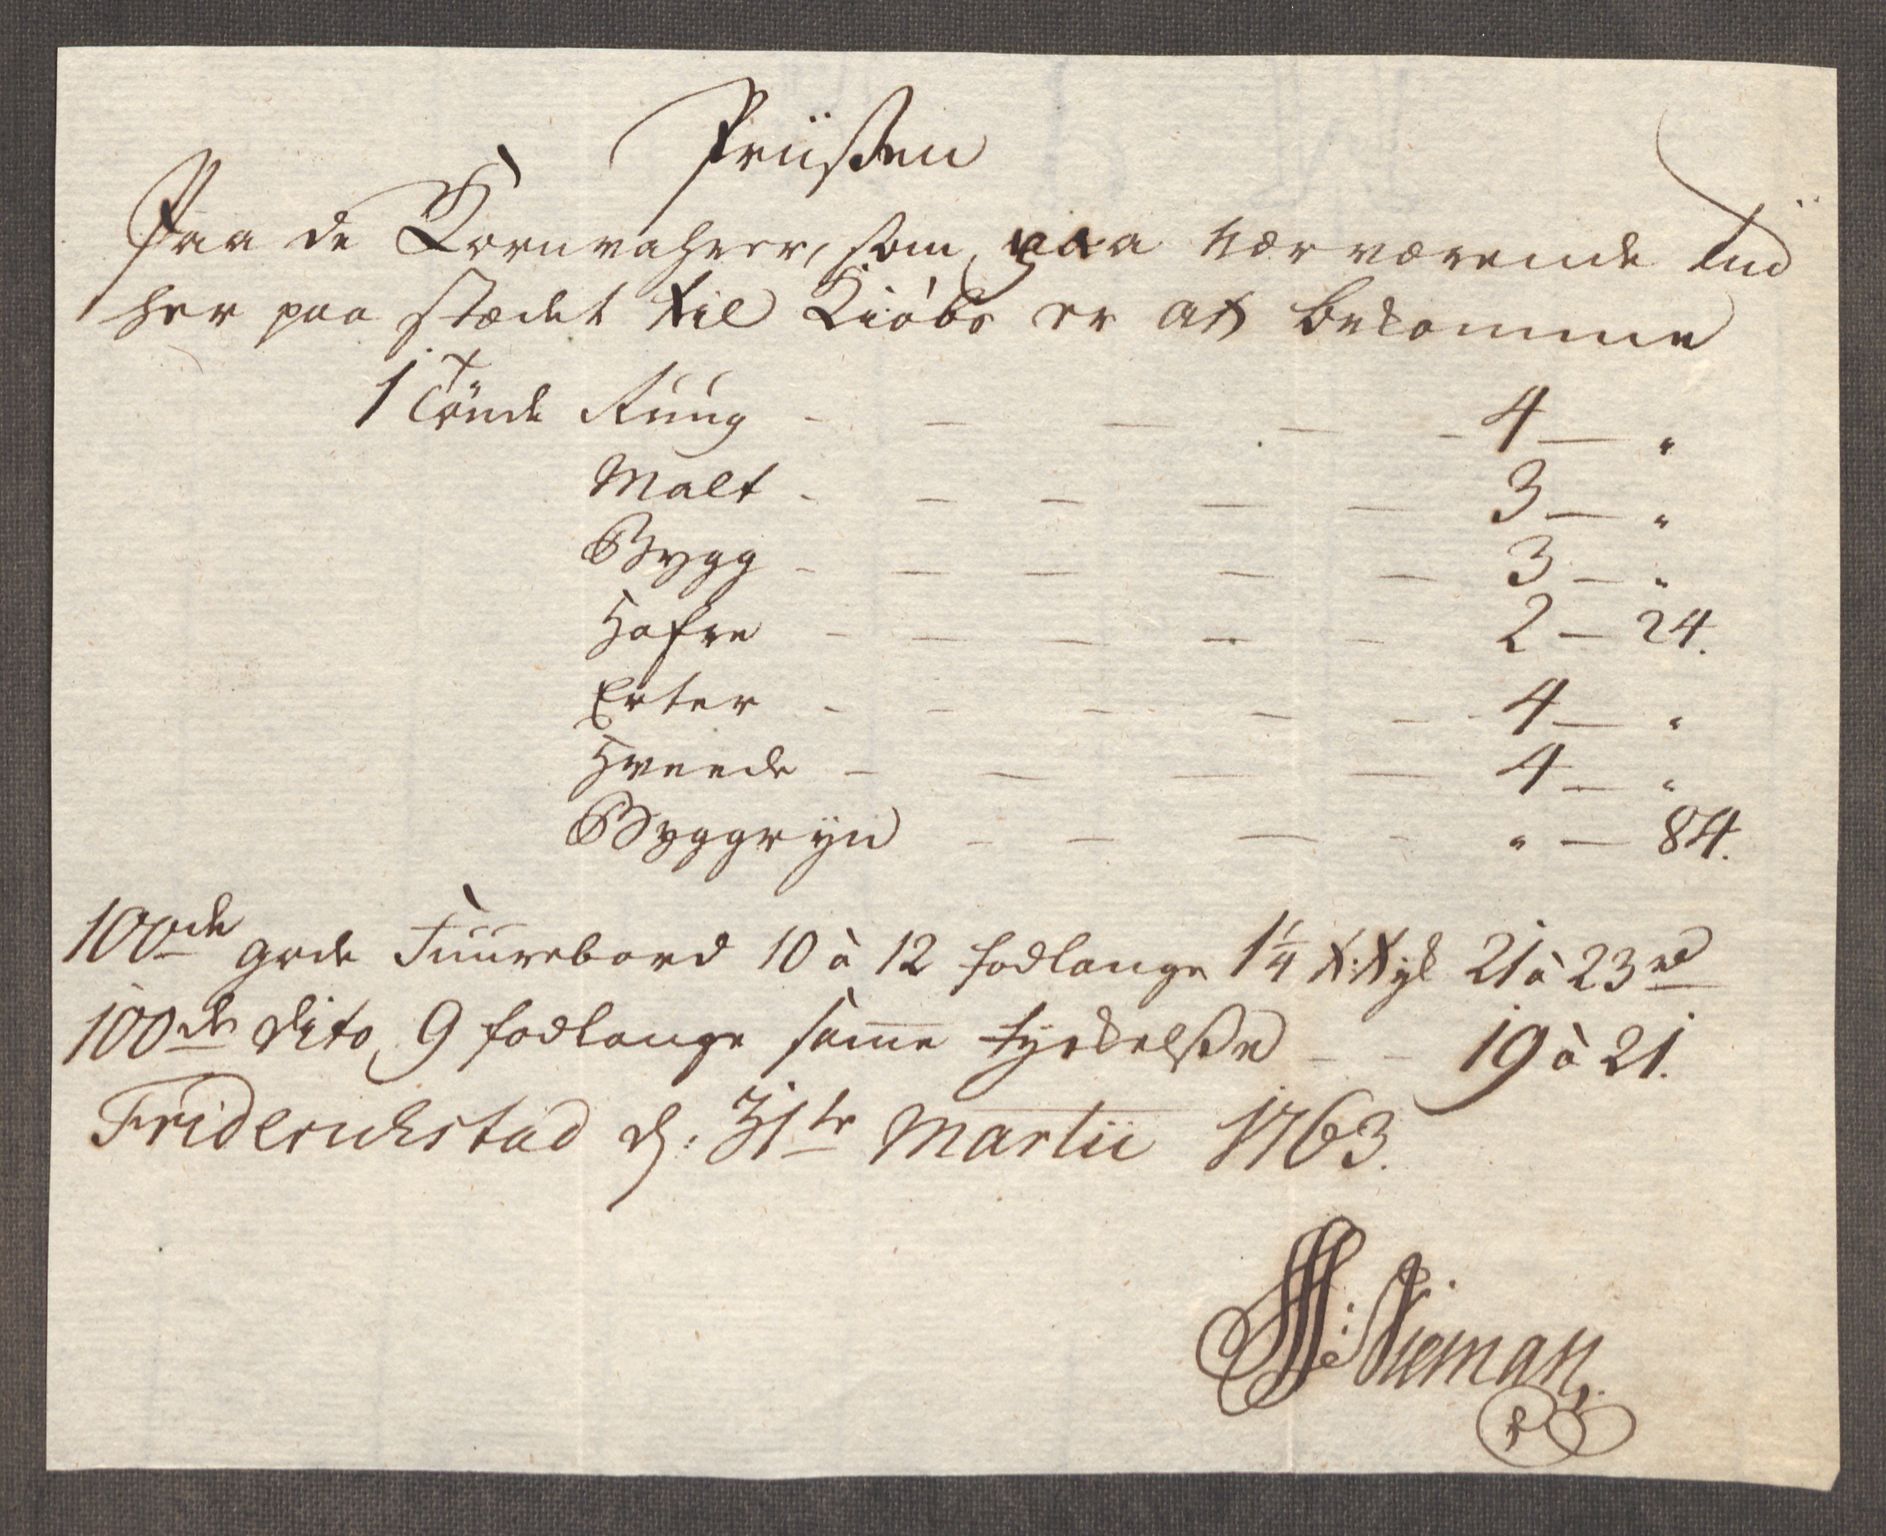 Priißen
Paa de Kornvahrer, som paa nærværende tiid
her paa stædet til Kiøbs er at bekomme
1 Tønde Ruug - - - - - 4 — "
Malt - - - - - 3 — "
Bygg - - - - - 3 — "
Hafre - - - - - 2 — 24.
Erter - - - - - 4 — "
Hveede - - - - 4 — "
Byggryn - - - - " — 84.
100de gode Fuurebord 10 à 12 fodlange 1¼ t: tyk 21 à 23 rd
100de dito, 9 fodlange same tyckelße - - 19 à 21.
Friderichstad d: 31te Martii 1763.
Nieman